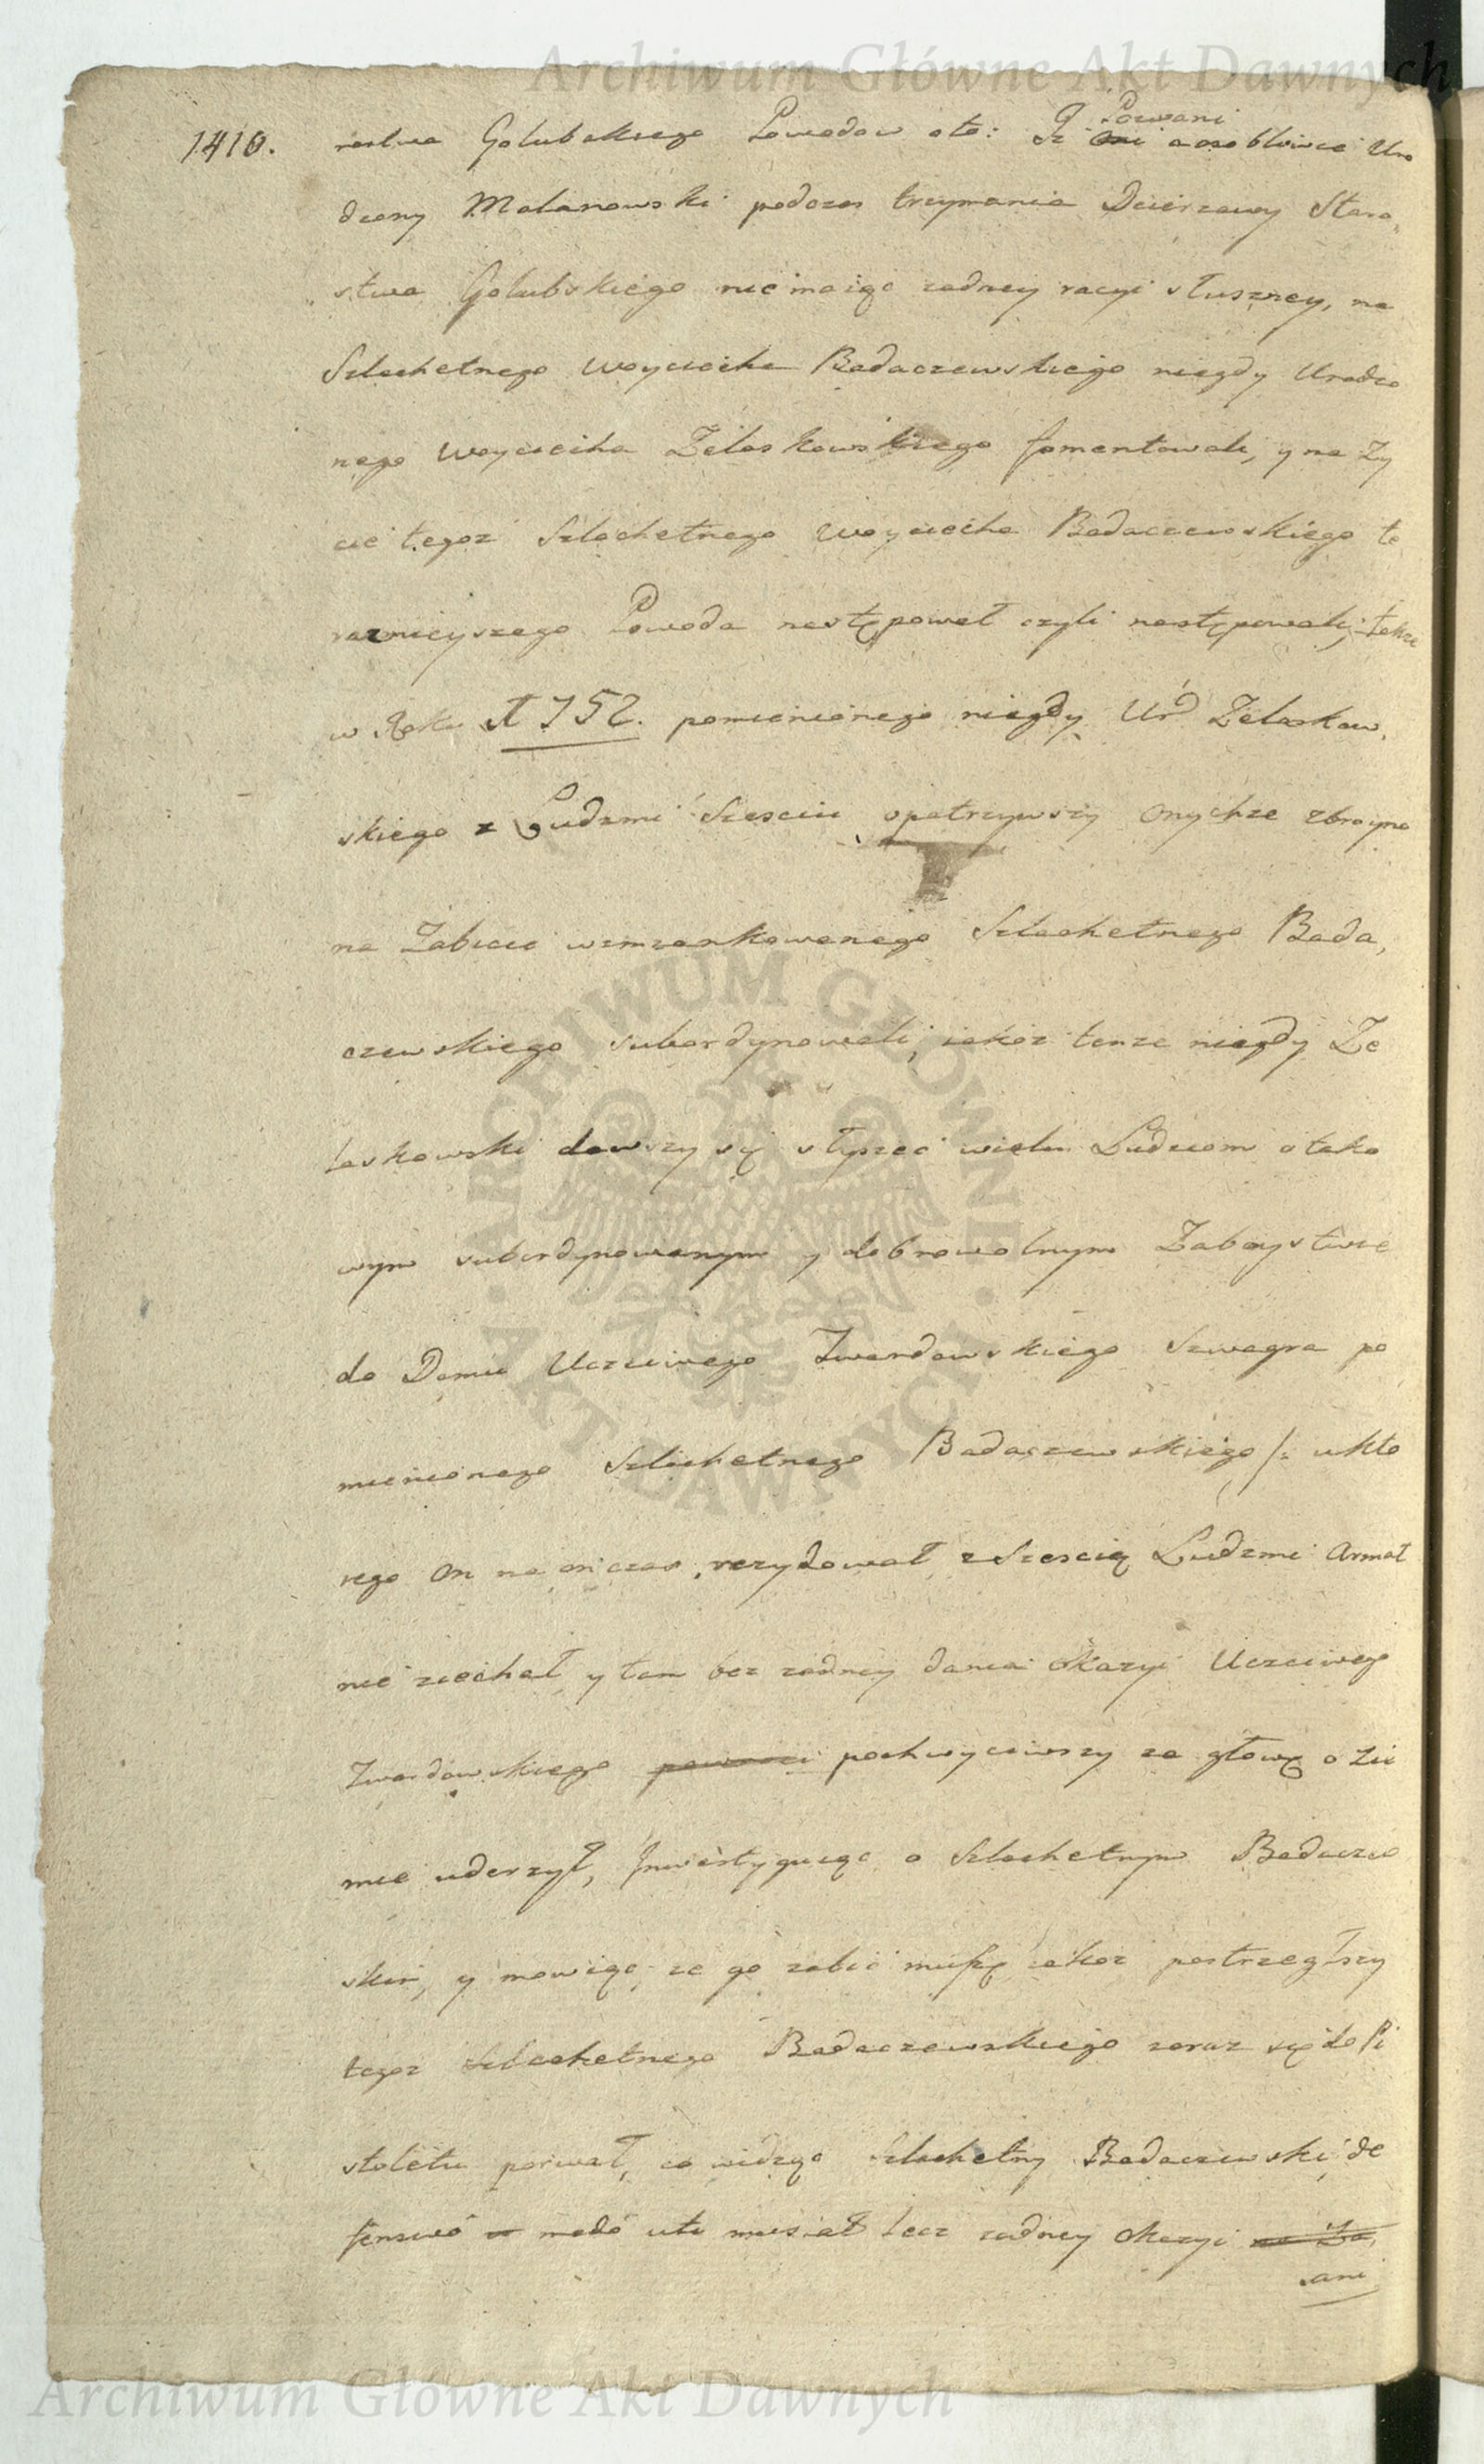 Archiwum Główne Akt Dawnych
1410.
rostwa Golubskiego Powodow oto: Iż ~~Oni~~ Pozwani a osobliwie Uro
dzony Malanowski podczas trzymania Dzierzawy Staro,
stwa Golubskiego nie maiąc zadney racyi słuszney, na
Szlachetnego Woyciecha Badaczewskiego niegdy Urodzo
nego Woyciecha Zelaskowskiego fomentowali, y na Zy
cie tegoz Szlachetnego Woyciecha Badaczewskiego te
raznieyszego Powoda następował czyli następowali, takze
w Roku 1752. pomienionego niegdy Ur Zelaskow,
skiego z Ludzmi Szesciu opatrzywszy Onychze zbroyno
na Zabicie wzmiankowanego Szlachetnego Bada,
czewskiego subordynowali, iakoz tenze niegdy Ze
laskowski dawszy się słyszec wielu Ludziom o tako
wym subordynowanym y dobrowolnym Zaboystwie
do Domu Uczciwego Twardowskiego Szwagra po
mienionego Szlachetnego Badaczewskiego /: u kto
rego On na on czas rezydował z Szescią Ludzmi Armat
nie ziechał, y tam bez zadney dania Okazyi Uczciwego
Twardowskiego pochwyciwszy za głowę o Zie
mie uderzył, Inwestyguiąc o Szlachetnym Badacze
skim, y mowiąc, ze go zabic muszę iakoz postrzegłszy
tegoz Szlachetnego Badaczewskiego zaraz się do Pi
stoletu porwał, co widząc Szlachetny Badaczewski de
fensivo modo uti musiał lecz zadney Okazyi ~~na Za,~~
ani
ARCHIWUM GŁÓWNE · AKT DAWNYCH ·
Archiwum Główne Akt Dawnych